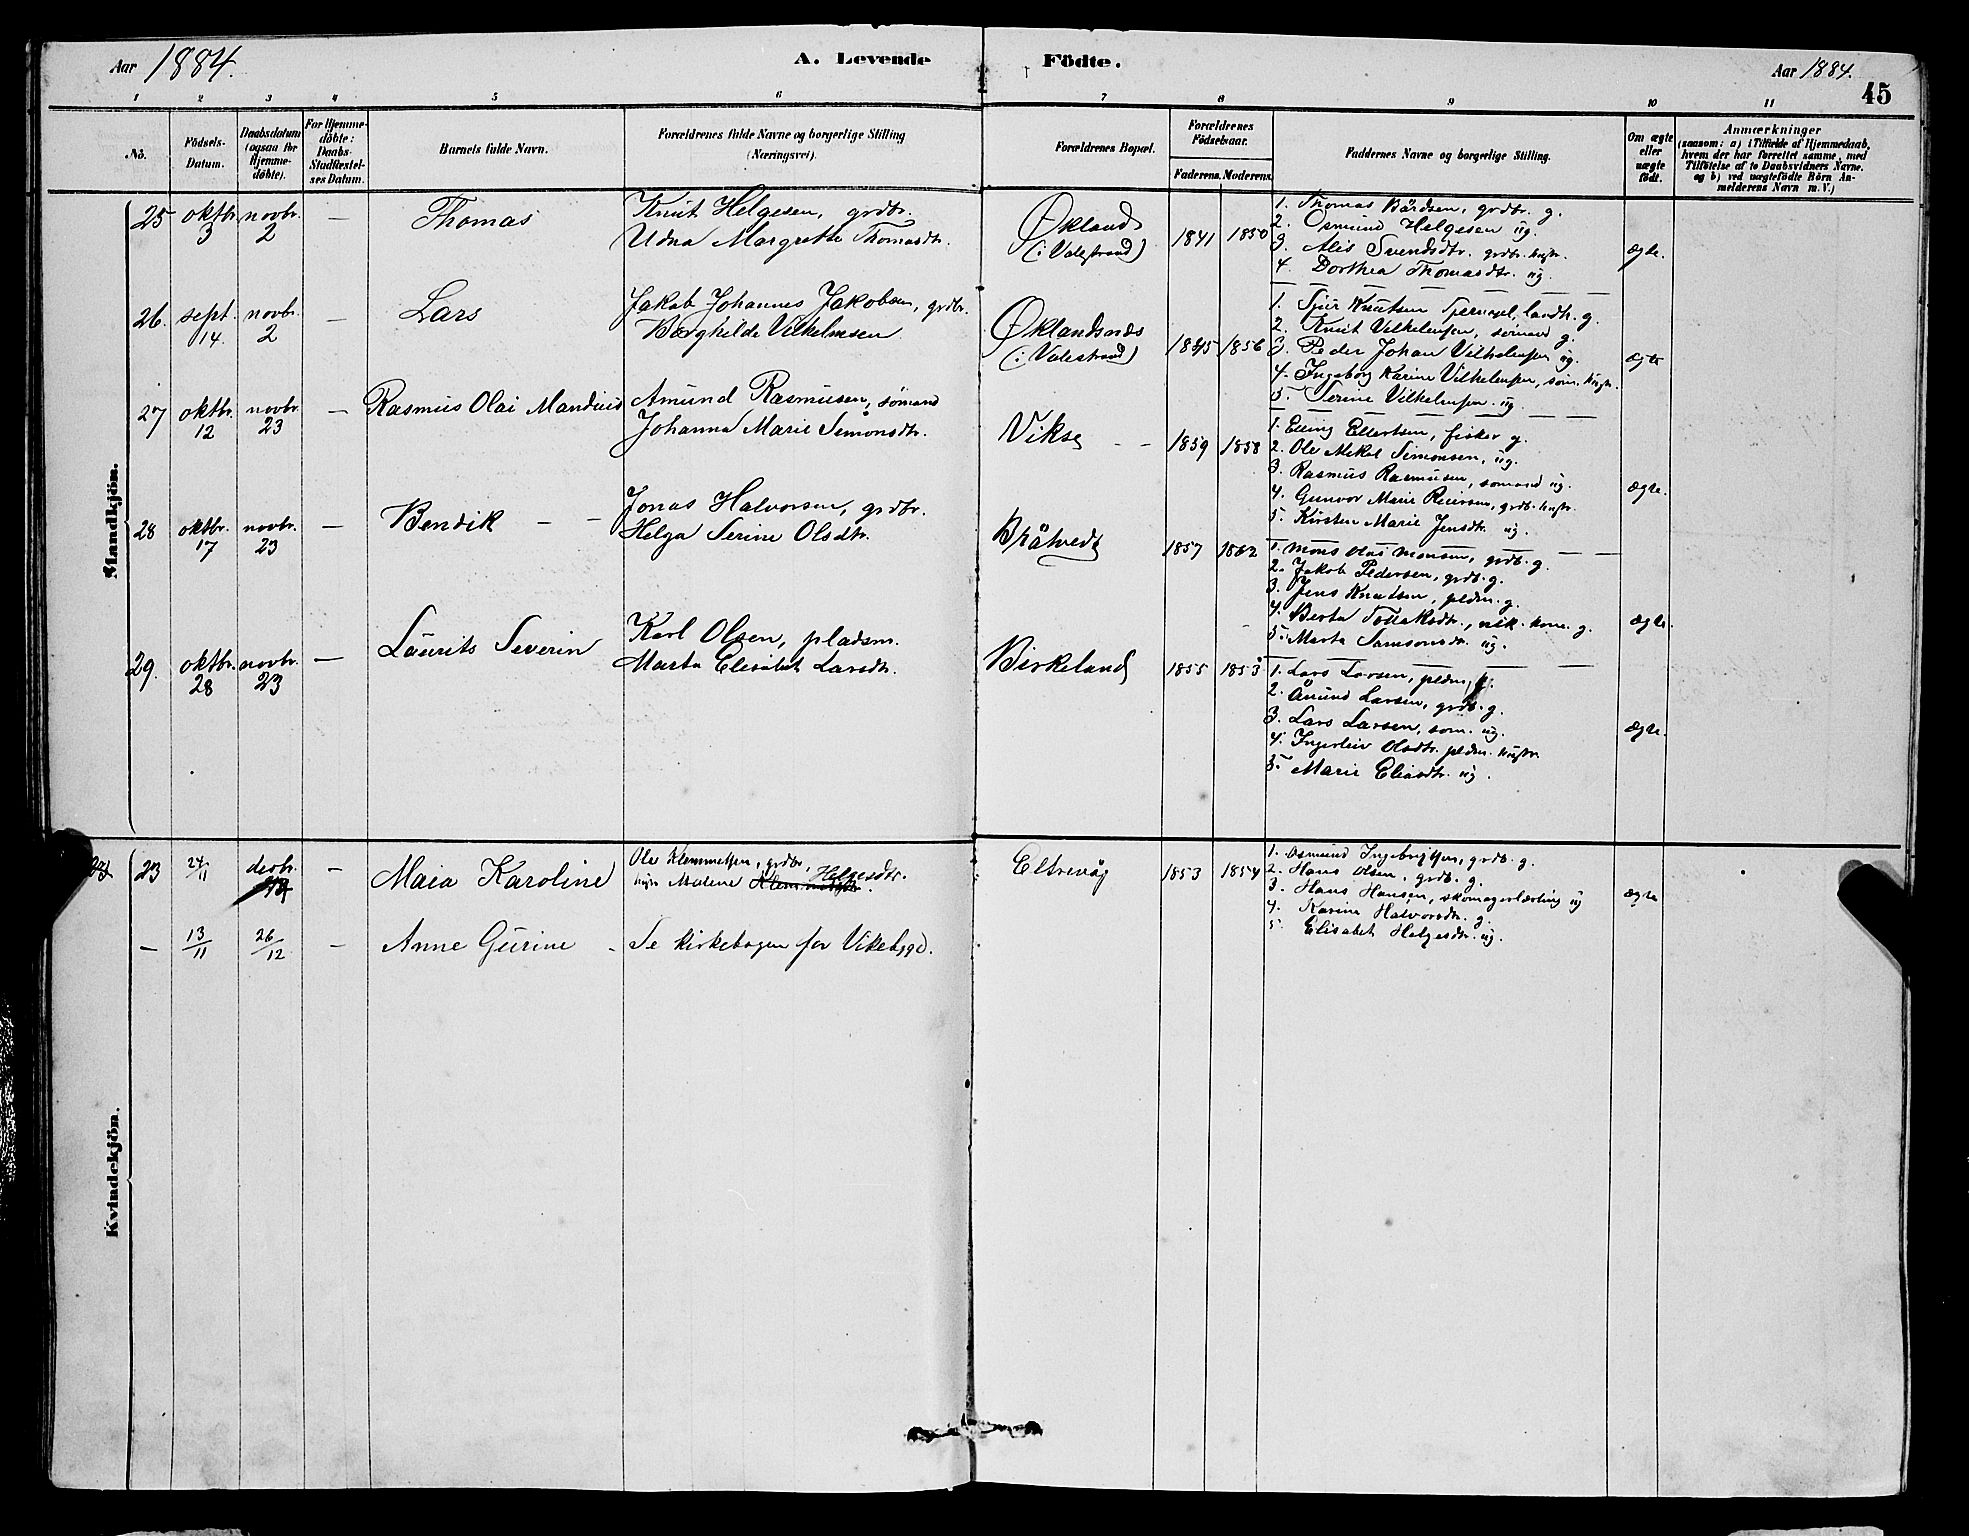 Aar 1884.
A. Levende Födte.
Aar 1884.
45
1 2 3 4 5 6 7 8 9 10 11
Nô.
Födsels-
Datum.
Daabsdatum
(ogsaa for
Hjemme-
döbte).
For Hjemme-
döbte:
Daabs-
Stadfæstel-
ses Datum.
Barnets fulde Navn.
Forældrenes fulde Navne og borgerlige Stilling
(Næringsvei).
Forældrenes Bopæl.
Forældrenes
Födselsaar.
Faderens. Moderens.
Faddernes Navne og borgerlige Stilling.
Om ægte
eller
uægte
födt.
Anmærkninger
(saasom: a) i Tilfælde af Hjemmedaab,
hvem der har forrettet samme, med
Tilföielse af to Daabsvidners Navne.
og b) ved uægtefödte Börn An-
melderens Navn m. V.)
Mandkjön.
25 oktbr. 3 novbr. 2 —
Thomas
Knut Helgesen, grdbr.
Udna Margrethe Thomasdtr.
Økland
(i Valestrand)
1841 1850
1. Thomas Bårdsen, grdbr. g.
2. Osmund Helgesen ug.
3. Alis Svendsdtr. grdbr. hustr.
4. Dorthea Thomasdtr. ug.
ægte.
26. sept. 14. novbr. 2 —
Lars
Jakob Johannes Jakobsen, grdbr.
Borghilde Vilhelmsen
Øklandsnæs
(i Valestrand)
1845 1856
1. Sjur Knutsen, landh. g.
2. Knut Vilhelmsen, sömand g.
3. Peder Johan Vilhelmsen ug.
4. Ingeborg Karine Vilhelmsen, söm. hustr.
5. Serine Vilhelmsen. ug.
ægte
27 oktbr. 12 novbr. 23 —
Rasmus Olai Mandius
Amund Rasmusen, sömand
Johanna Marie Simonsdtr.
Vikse — —
1859 1858
1. Elling Ellertsen, fisker g.
2. Ole Mikal Simonsen, ug.
3. Rasmus Rasmusen, sömand ug.
4. Gunvor Marie Reiersen, grdb. hustr.
5. Kirsten Marie Jensdtr. ug.
ægte.
28 oktbr. 17 novbr. 23 —
Bendik — —
Jonas Halvorsen, grdbr.
Helga Serine Olsdtr.
Bråtvedt
1857 1862
1. Mons Olai Monsen, grdb. g.
2. Jakob Pedersen, grdb. g.
3. Jens Knutsen, pldm. g.
4. Berta Tollaksdtr., kone g.
5. Marta Samsonsdtr. ug.
ægte.
29. oktbr. 28 novbr. 23 —
Laurits Severin
Karl Olsen, pladsm.
Marta Elisabet Larsdtr.
Birkeland
1855 1853
1. Lars Larsen, pldm, g.
2. Åmund Larsen, grdb. g.
3. Lars Larsen, söm. ug.
4. Ingerleiv Olsdtr. pldm. hustr.
5. Marie Eliasdtr. ug.
ægte.
Kvindekjön.
23 24/11 decbr. —
Maia Karoline
Ole Klemmetsen, grdbr,
hustr. Malene Helgesdtr.
Eltrevåg
1853 1854
1. Osmund Ingebrigtsen, grdb. g.
2. Hans Olsen, grdb. g.
3. Hans Hansen, skomagerlærling ug
4. Karine Halvorsdtr. g.
5. Elisabet Helgesdtr. ug.
ægte
— 13/11 26/12 —
Anne Gurine —
Se kirkebogen for Vikebygd.